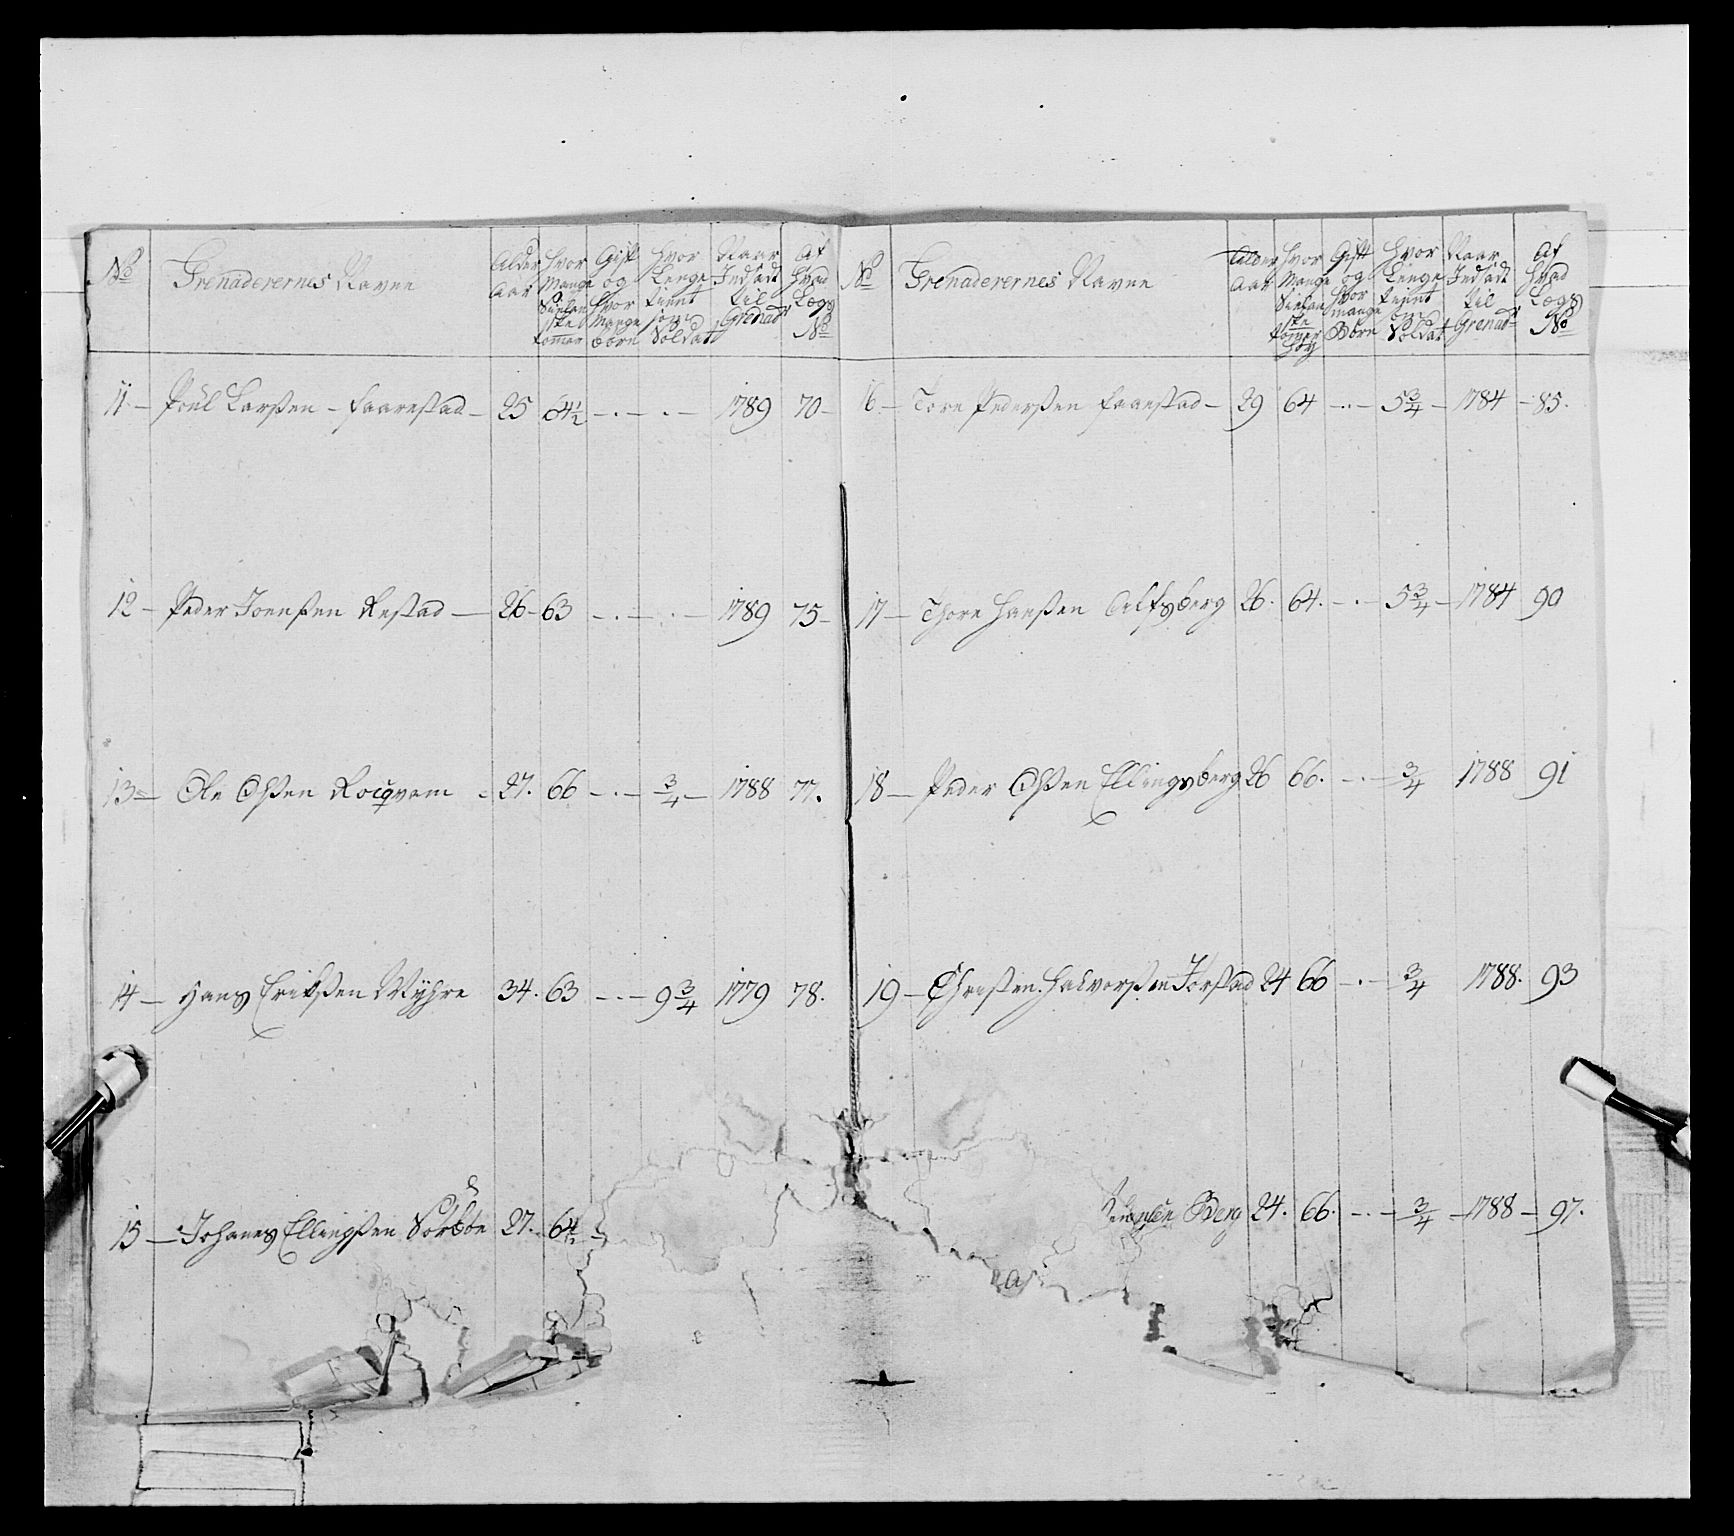 No Grenaderernes Navne Alder Aar Hvor Mange Sielanske tommer Gift og Hvor Mange börn Hvor Lenge tient som Soldat Naar Indsadt til Grenadr Af Hvad Lægs No
11 – Poul Larssen – Faarestad – 25 64½ – . – . – 1789 70 –
12 – Peder Joenssen Restad — 26 – 63 – . – . – 1789 75 –
13 – Ole Olssen Rocqvam – 27. 66 – . – 3/4 – 1788 77.
14 – Hans Erikssen Myhre 34. 63 – . – 9 3/4 1779 78.
15 – Johanes Ellingssen Sörböe 27. 64½
No Grenaderernes Navne Alder Aar Hvor Mange Sielanske tommer Höy Gift og Hvor mange Börn Hvor Lenge tient som Soldat Naar Indsadt til Grenadr Af Hvad Lægs No
16 – Tore Pederssen Faarstad – 29 64 – . – 5 3/4 – 1784 – 85.
17 – Thore Hanssen Alfsberg 26. 64. – . – 5 3/4 – 1784 90
18 – Peder Olssen Ellingsberg 26 66. – . – 3/4 1788 91
19 – Christen Halvorssen Jorstad 24 66 – . – 3/4 1788. 93
Berg 24. 66. – . – 3/4 – 1788 – 97.